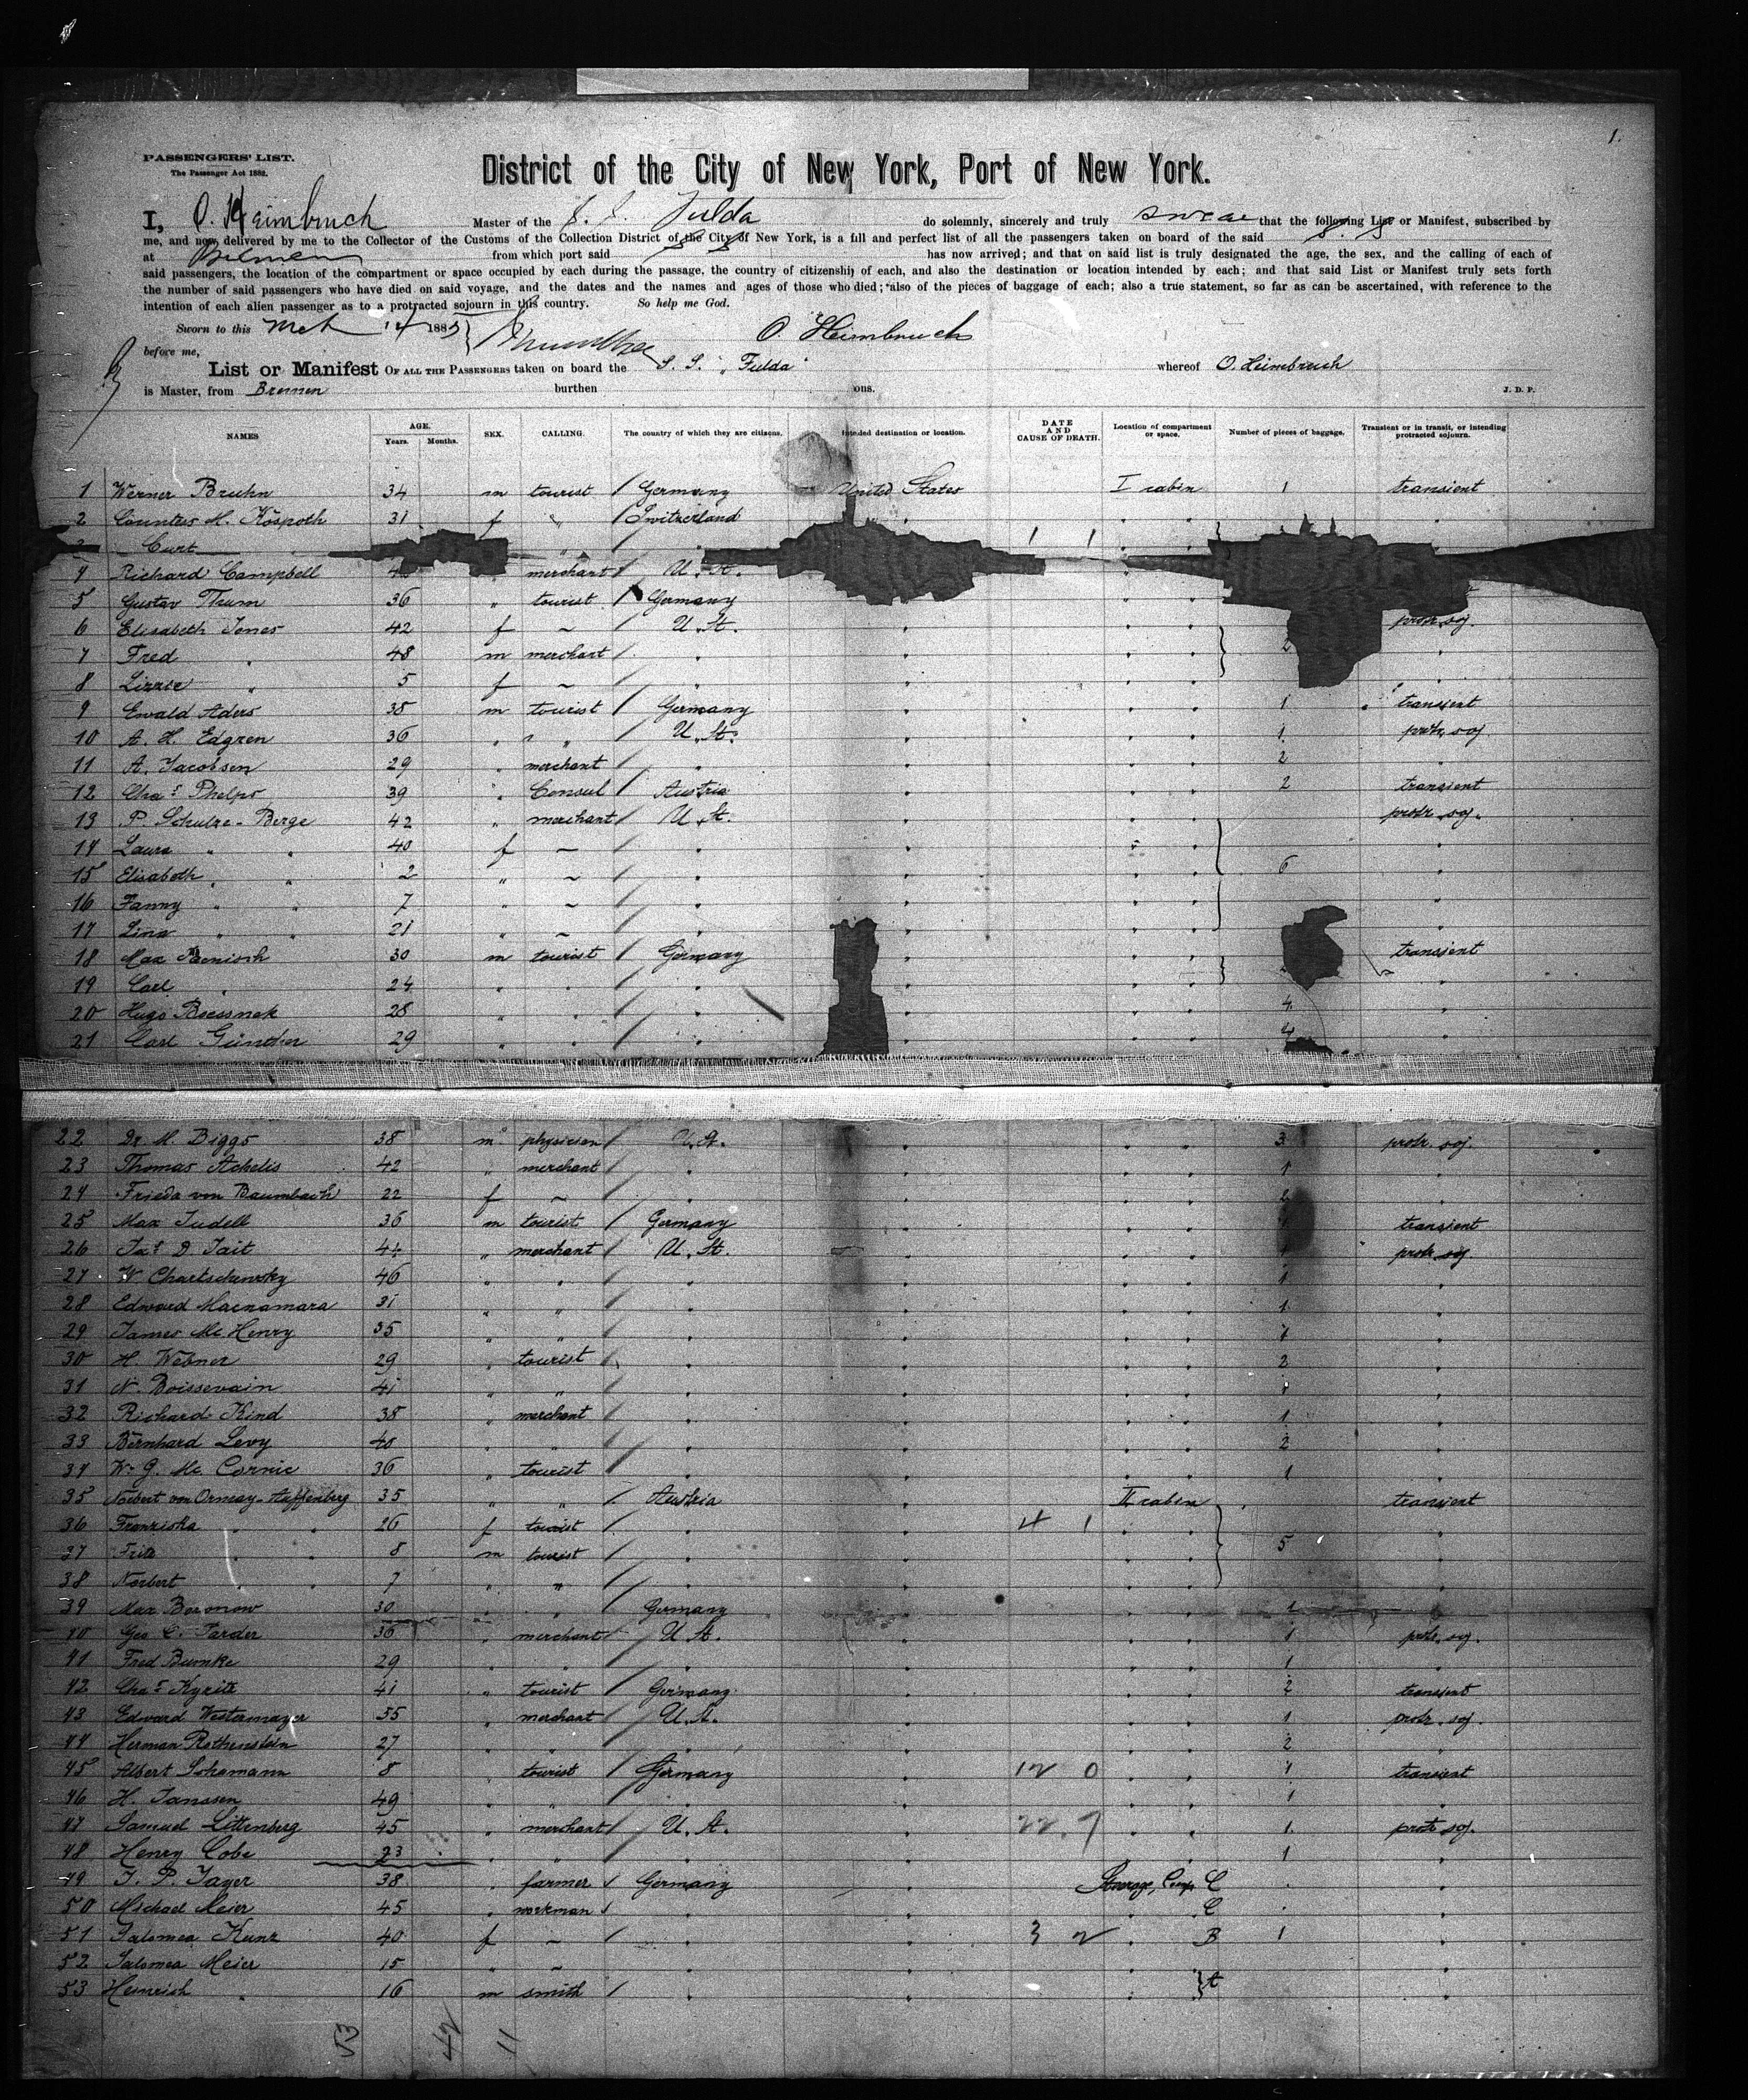 1.
PASSENGERS' LIST.
The Passenger Act 1882.
District of the City of New York, Port of New York.
I, O. Heimbruch Master of the S. S. Fulda do solemnly, sincerely and truly swear that the following List or Manifest, subscribed by
me, and now delivered by me to the Collector of the Customs of the Collection District of the City of New York, is a full and perfect list of all the passengers taken on board of the said S. S.
at Bremen from which port said S S has now arrived; and that on said list is truly designated the age, the sex, and the calling of each of
said passengers, the location of the compartment or space occupied by each during the passage, the country of citizenship of each, and also the destination or location intended by each; and that said List or Manifest truly sets forth
the number of said passengers who have died on said voyage, and the dates and the names and ages of those who died; also of the pieces of baggage of each; also a true statement, so far as can be ascertained, with reference to the
intention of each alien passenger as to a protracted sojourn in this country. So help me God.
Sworn to this Mch 14 188 O. Heimbruch
before me,
List or Manifest OF ALL THE PASSENGERS taken on board the S. S. "Fulda" whereof O. Heimbruch
is Master, from Bremen burthen ons. J. D. P.
NAMES AGE. Years. Months. SEX. CALLING. The country of which they are citizens. Intended destination or location. DATE AND CAUSE OF DEATH. Location of compartment or space. Number of pieces of baggage. Transient or in transit, or intending protracted sojourn.
1 Werner Bruhn 34 m tourist Germany United States I cabin 1 transient
2 Countess M. Köspoth 31 f " Switzerland "
3 Curt " 1 1 "
4 Richard Campbell merchant U. St. "
5 Gustav Thum 36 " tourist Germany "
6 Elisabeth Jones 42 f ~ U. St. " " " protr. soj.
7 Fred " 48 m merchant " " " " 2 "
8 Lizzie " 5 f ~ " " " " "
9 Ewald Aders 38 m tourist Germany " " " 1 transient
10 A. H. Edgren 36 " " " U. St. " " " 1 protr. soj.
11 A. Jacobsen 29 " merchant " " " " 2 "
12 Chas Phelps 39 " Consul Austria " " " 2 transient
13 P. Schulze-Berge 42 " merchant U. St. " " " protr. soj.
14 Laura " " 40 f ~ " " " " "
15 Elisabeth " " 2 " ~ " " " " 6 "
16 Fanny " " 7 " ~ " " " " "
17 Lina " " 21 " ~ " " " " "
18 Max 30 m tourist Germany " " " transient
19 Carl " 24 " " " " " "
20 Hugo 28 " " " " " " 4 "
21 Carl Günther 29 " " " " " " 4 "
22 Dr. M. Biggs 38 m physician U. St. " " " 3 protr. soj.
23 Thomas Achelis 42 " merchant " " " " 1 "
24 Frieda von Baumbach 22 f ~ " " " " 2 "
25 Max Judell 36 m tourist Germany " " " transient
26 Jas D Tait 44 " merchant U. St. " " " protr. soj.
27 W Chartschewsky 46 " " " " " " 1 "
28 Edward Macnamara 31 " " " " " " 1 "
29 James Mc Henry 35 " " " " " " "
30 H. Webner 29 " tourist " " " " 2 "
31 N. Boissevain 41 " " " " " " "
32 Richard Kind 38 " merchant " " " " 1 "
33 Bernhard Levy 40 " " " " " " 2 "
34 Wm G. Mc Cornic 36 " tourist " " " " 1 "
35 Norbert von Ormay- 35 " " Austria " II cabin transient
36 Franziska " " 26 f tourist " " 4 1 " " "
37 Friz " " 8 m tourist " " " " 5 "
38 Norbert " " 7 " " " " " " "
39 Max Boronow 30 " " Germany " " " 1 "
40 Geo. C. Tarder 36 " merchant U. St. " " " 1 protr. soj.
41 Fred Bumke 29 " " " " " " 1 "
42 Chas Kyritz 41 " tourist Germany " " " 2 transient
43 Edward Westermayer 55 " merchant U. St. " " " 1 protr. soj.
44 Herman Rothenstein 27 " " " " " " 2 "
45 Albert Schamann 8 " tourist Germany " 12 0 " " 1 transient
46 H. Janssen 49 " " " " " " 1 "
47 Samuel Littenberg 45 " merchant U. St. " 22. 7 " " 1 protr. soj.
48 Henry Cobe 23 " " " " " " 1 "
49 J. P. Jager 38 " farmer Germany " Steerage, Comp. C " "
50 Michael Meier 45 " workman " " C " "
51 Salomea Kunz 40 f ~ " " 3 2 " B 1 "
52 Salomea Meier 15 " ~ " " " " "
53 Heinrich " 16 m smith " " " A "
53 42 11